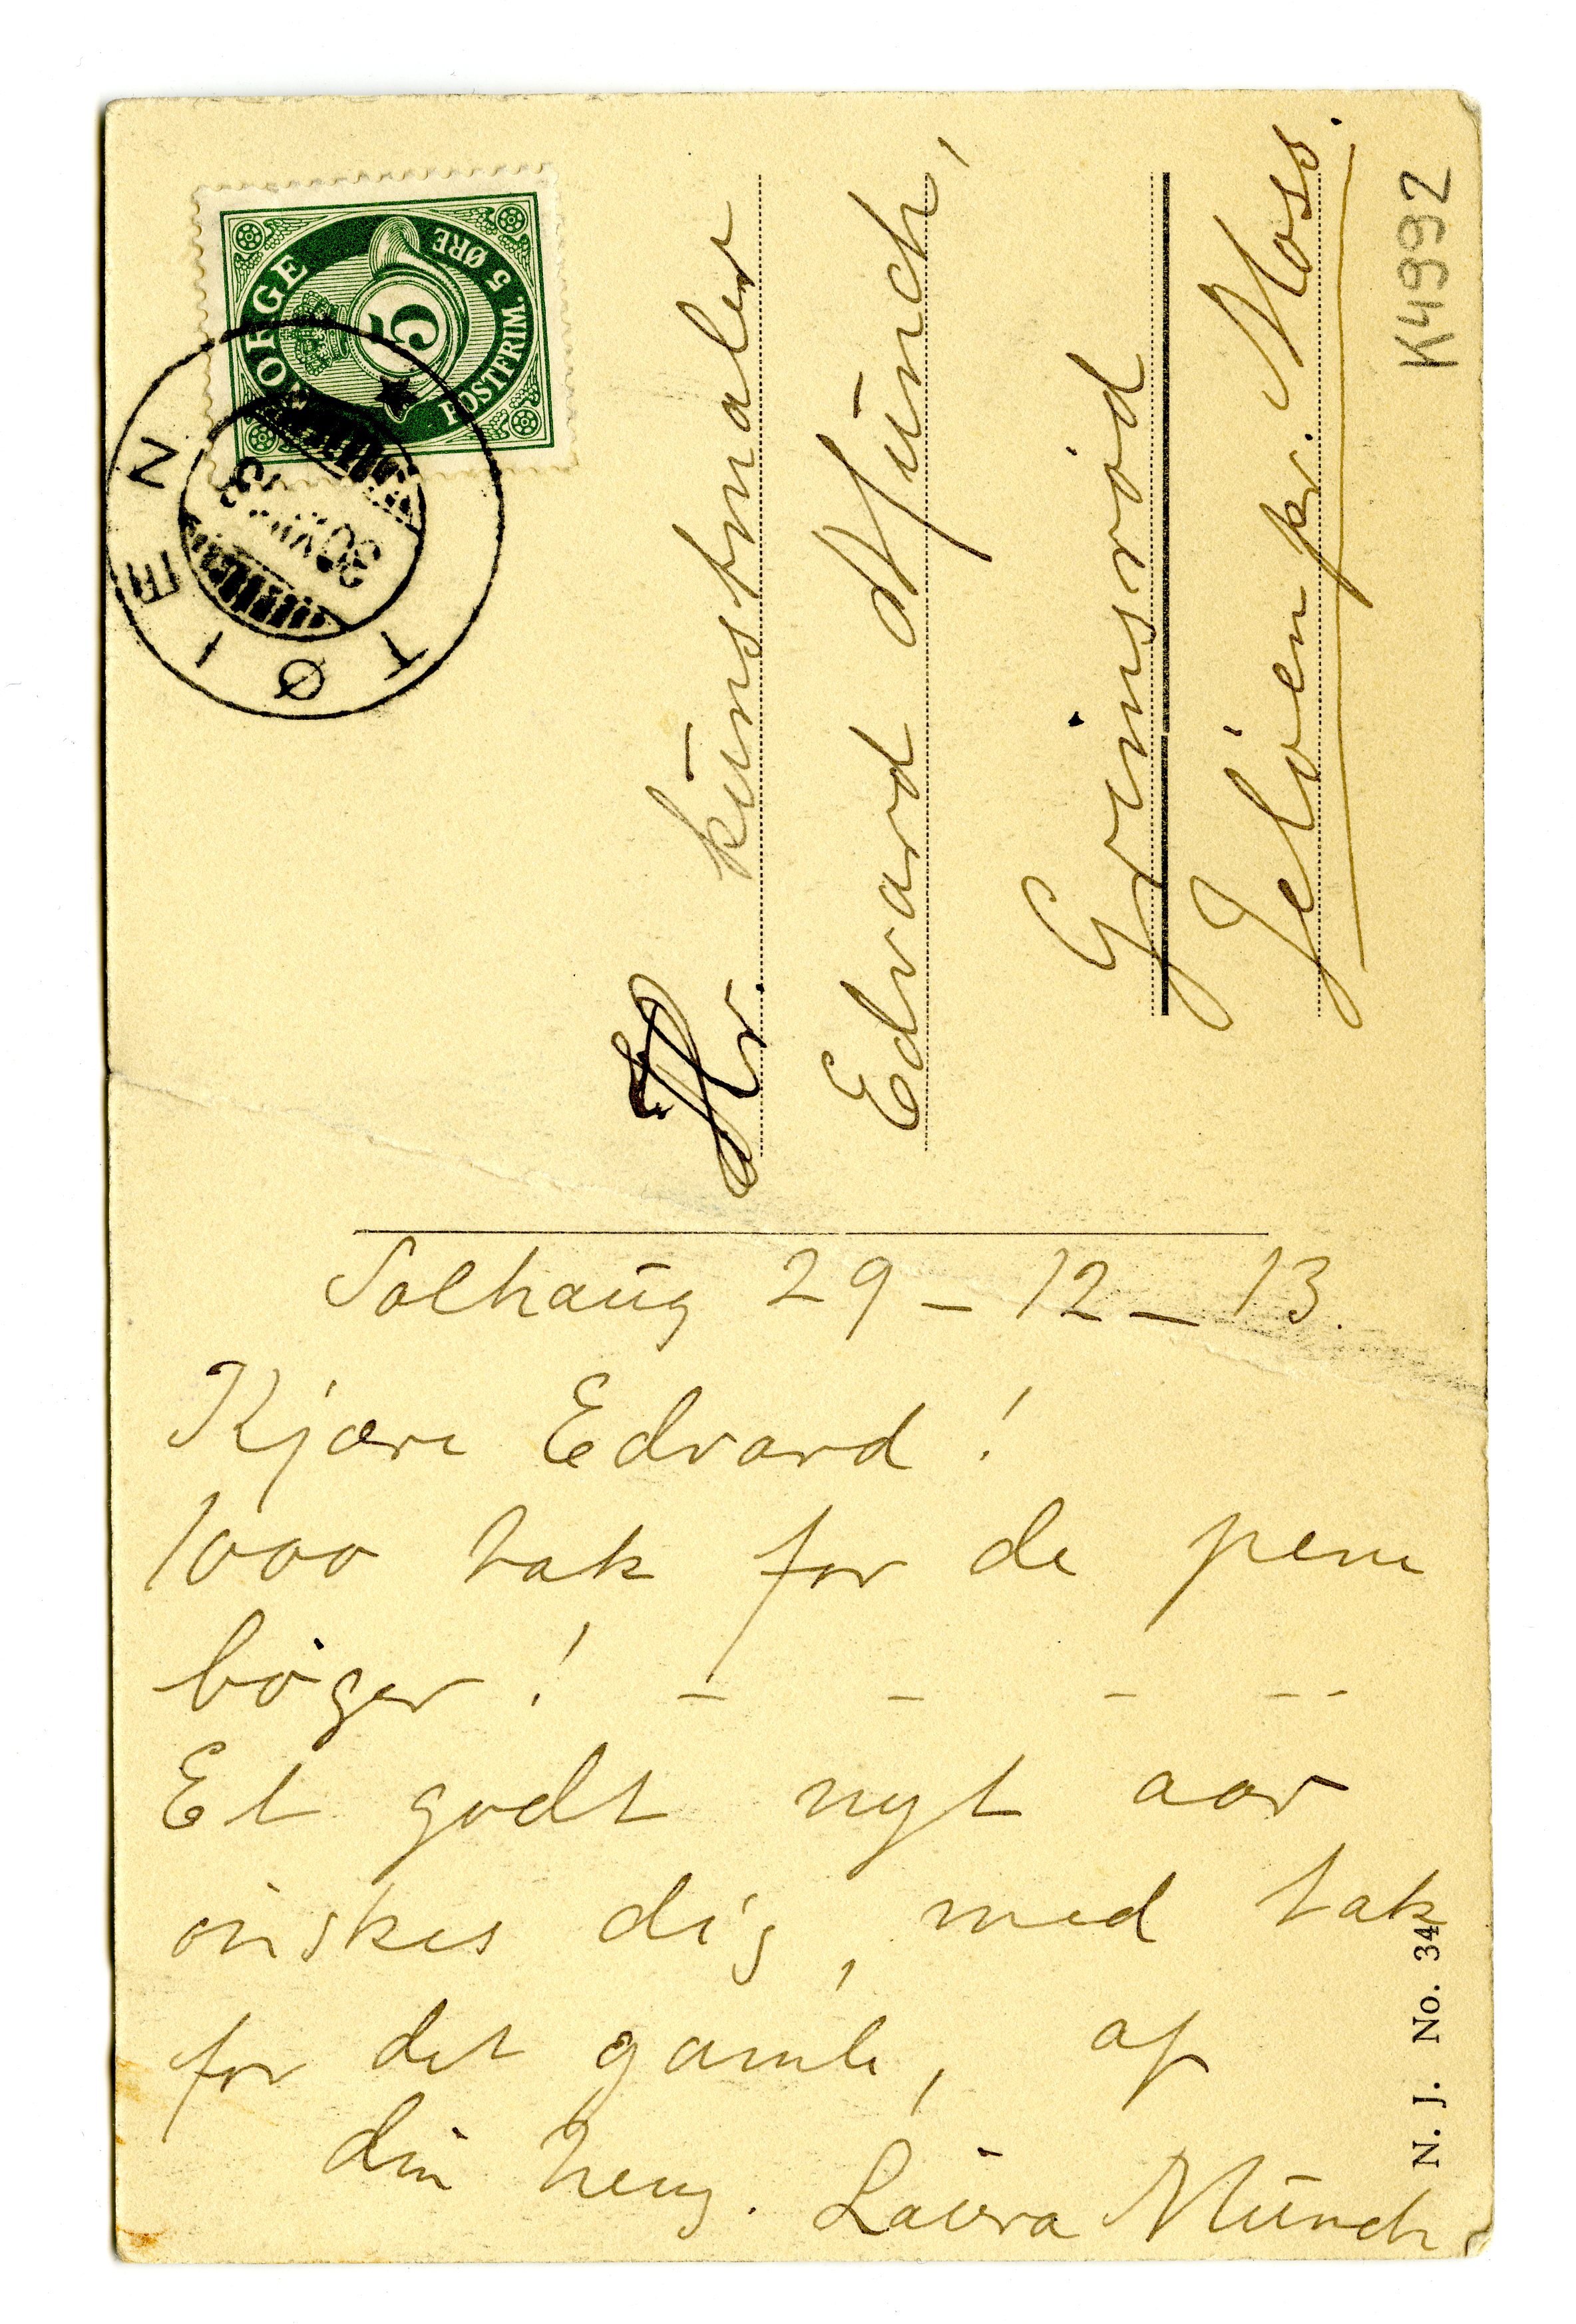 NORGE
5
POSTFRIM. 5 ØRE
TØIEN
30 XII 13
Hr. kunstmaler
Edvard Munch,
Grimsrød
Jeløen pr. Moss.
K4992
Solhaug 29 – 12 – 13.
Kjære Edvard!
1000 tak for de pene
bøger! – – – – –
Et godt nyt aar
ønskes dig, med tak
for det gamle, af
din heng. Laura Munch
N. J. No. 34